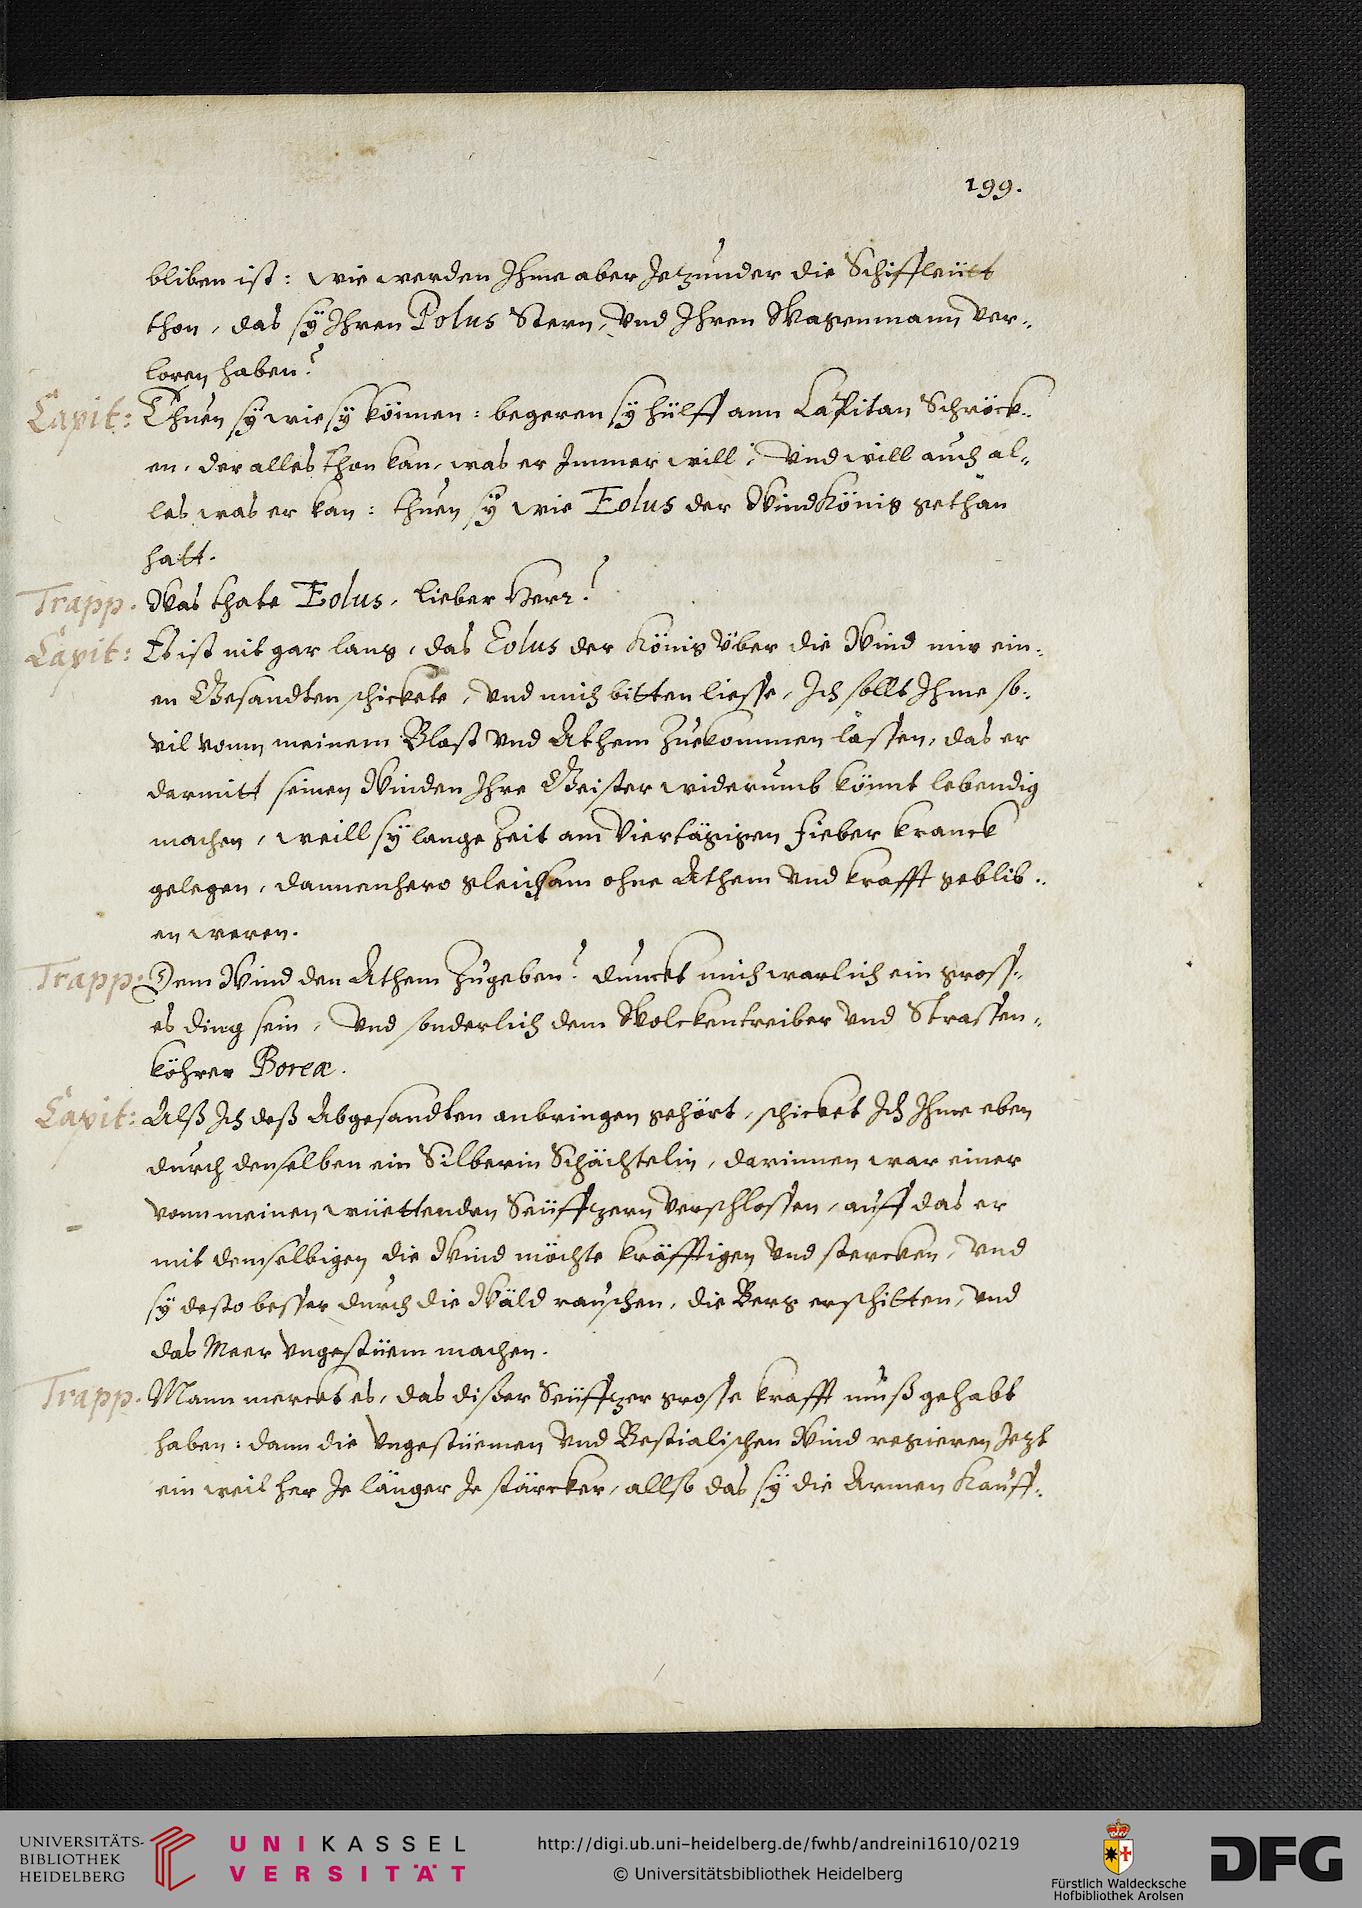 199.
bliben ist: wie werden Ihme aber Jetzunder die Schiffleütt
thon, das sÿ Ihren Polus Stern, vnd Ihren Wagenmann ver-
loren haben?
Capit: Thuen sÿ wie sÿ können: begeren sÿ hülff ann Capitan Schröck-
en, der alles thon kan, was er Immer will, vnd will auch al-
les was er kan: thuen sÿ wie Eolus der Wind König gethan
hatt.
Trapp. Was thate Eolus, lieber Herr?
Capit: Es ist nit gar lang, das Eolus der König über die Wind mir ein-
en Gesandten schickete, vnd mich bitten liesse, Ich sollt Ihme so-
vil vonn meinem Blast vnd Athem zuekommen lassen, das er
darmitt seinen Winden Ihre Geister widerumb könnt lebendig
machen, weill sÿ lange Zeit am Viertägigen fieber kranck
gelegen, dannenhero gleichsam ohne Athem vnd krafft geblib-
en weren.
Trapp: Dem Wind den Athem Zugeben? dunckt mich warlich ein gross-
es ding sein, vnd sonderlich dem Wolckentreiber vnd Strassen-
köhrer Boreæ.
Capit: Alß Ich deß Abgesandten anbringen gehört, schicket Ich Ihme eben
durch denselben ein Silberin Schächtelin, darinnen war einer
vonn meinen wüettenden Seüffzern verschlossen, auff das er
mit demselbigen die Wind möchte kräfftigen vnd stercken, vnd
sÿ desto besser durch die Wäld rauschen, die Berg erschitten, vnd
das Meer vngestüem machen.
Trapp. Mann merckt es, das dißer Seüffzer grosse krafft muß gehabt
haben: dann die vngestüemen vnd Bestialischen Wind regieren Jetzt
ein weil her Je länger Je stärcker, allso das sÿ die Armen Kauff-
UNIVERSITÄTS-
BIBLIOTHEK
HEIDELBERG
UNIKASSEL
VERSITÄT
http://digi.ub.uni-heidelberg.de/fwhb/andreini1610/0219
© Universitätsbibliothek Heidelberg
Fürstlich Waldecksche
Hofbibliothek Arolsen
DFG